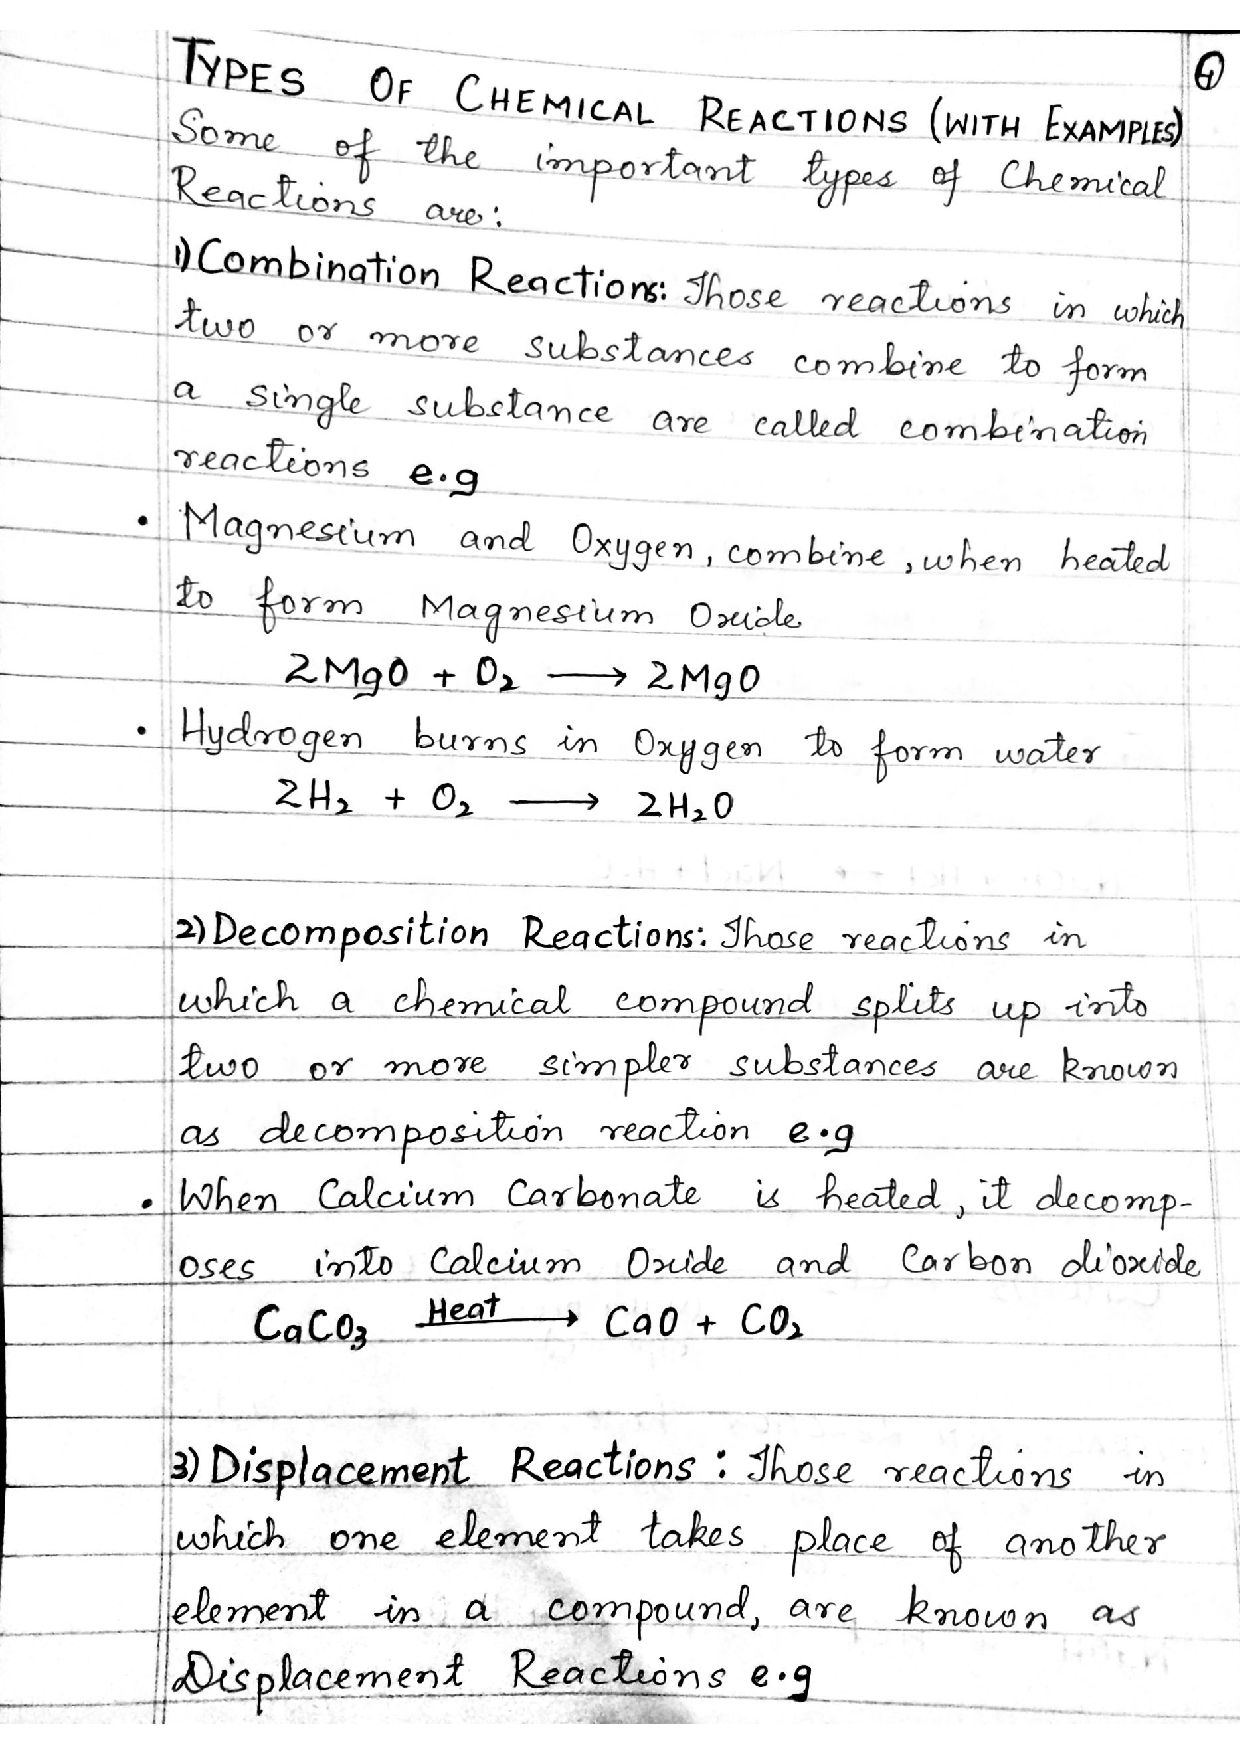 TYPES OF CHEMICAL REACTIONS (WITH EXAMPLES)
Some of the important types of Chemical
Reactions are:
1) Combination Reactions: Those reactions in which
two or more substances combine to form
a single substance are called combination
reactions e.g
• Magnesium and Oxygen, combine, when heated
to form Magnesium Oxide
2MgO + O₂ ⟶ 2MgO
• Hydrogen burns in Oxygen to form water
2H₂ + O₂ ⟶ 2H₂O
2) Decomposition Reactions: Those reactions in
which a chemical compound splits up into
two or more simpler substances are known
as decomposition reaction e.g
• When Calcium Carbonate is heated, it decomp-
oses into Calcium Oxide and Carbon dioxide
CaCO₃ Heat⟶ CaO + CO₂
3) Displacement Reactions: Those reactions in
which one element takes place of another
element in a compound, are known as
Displacement Reactions e.g